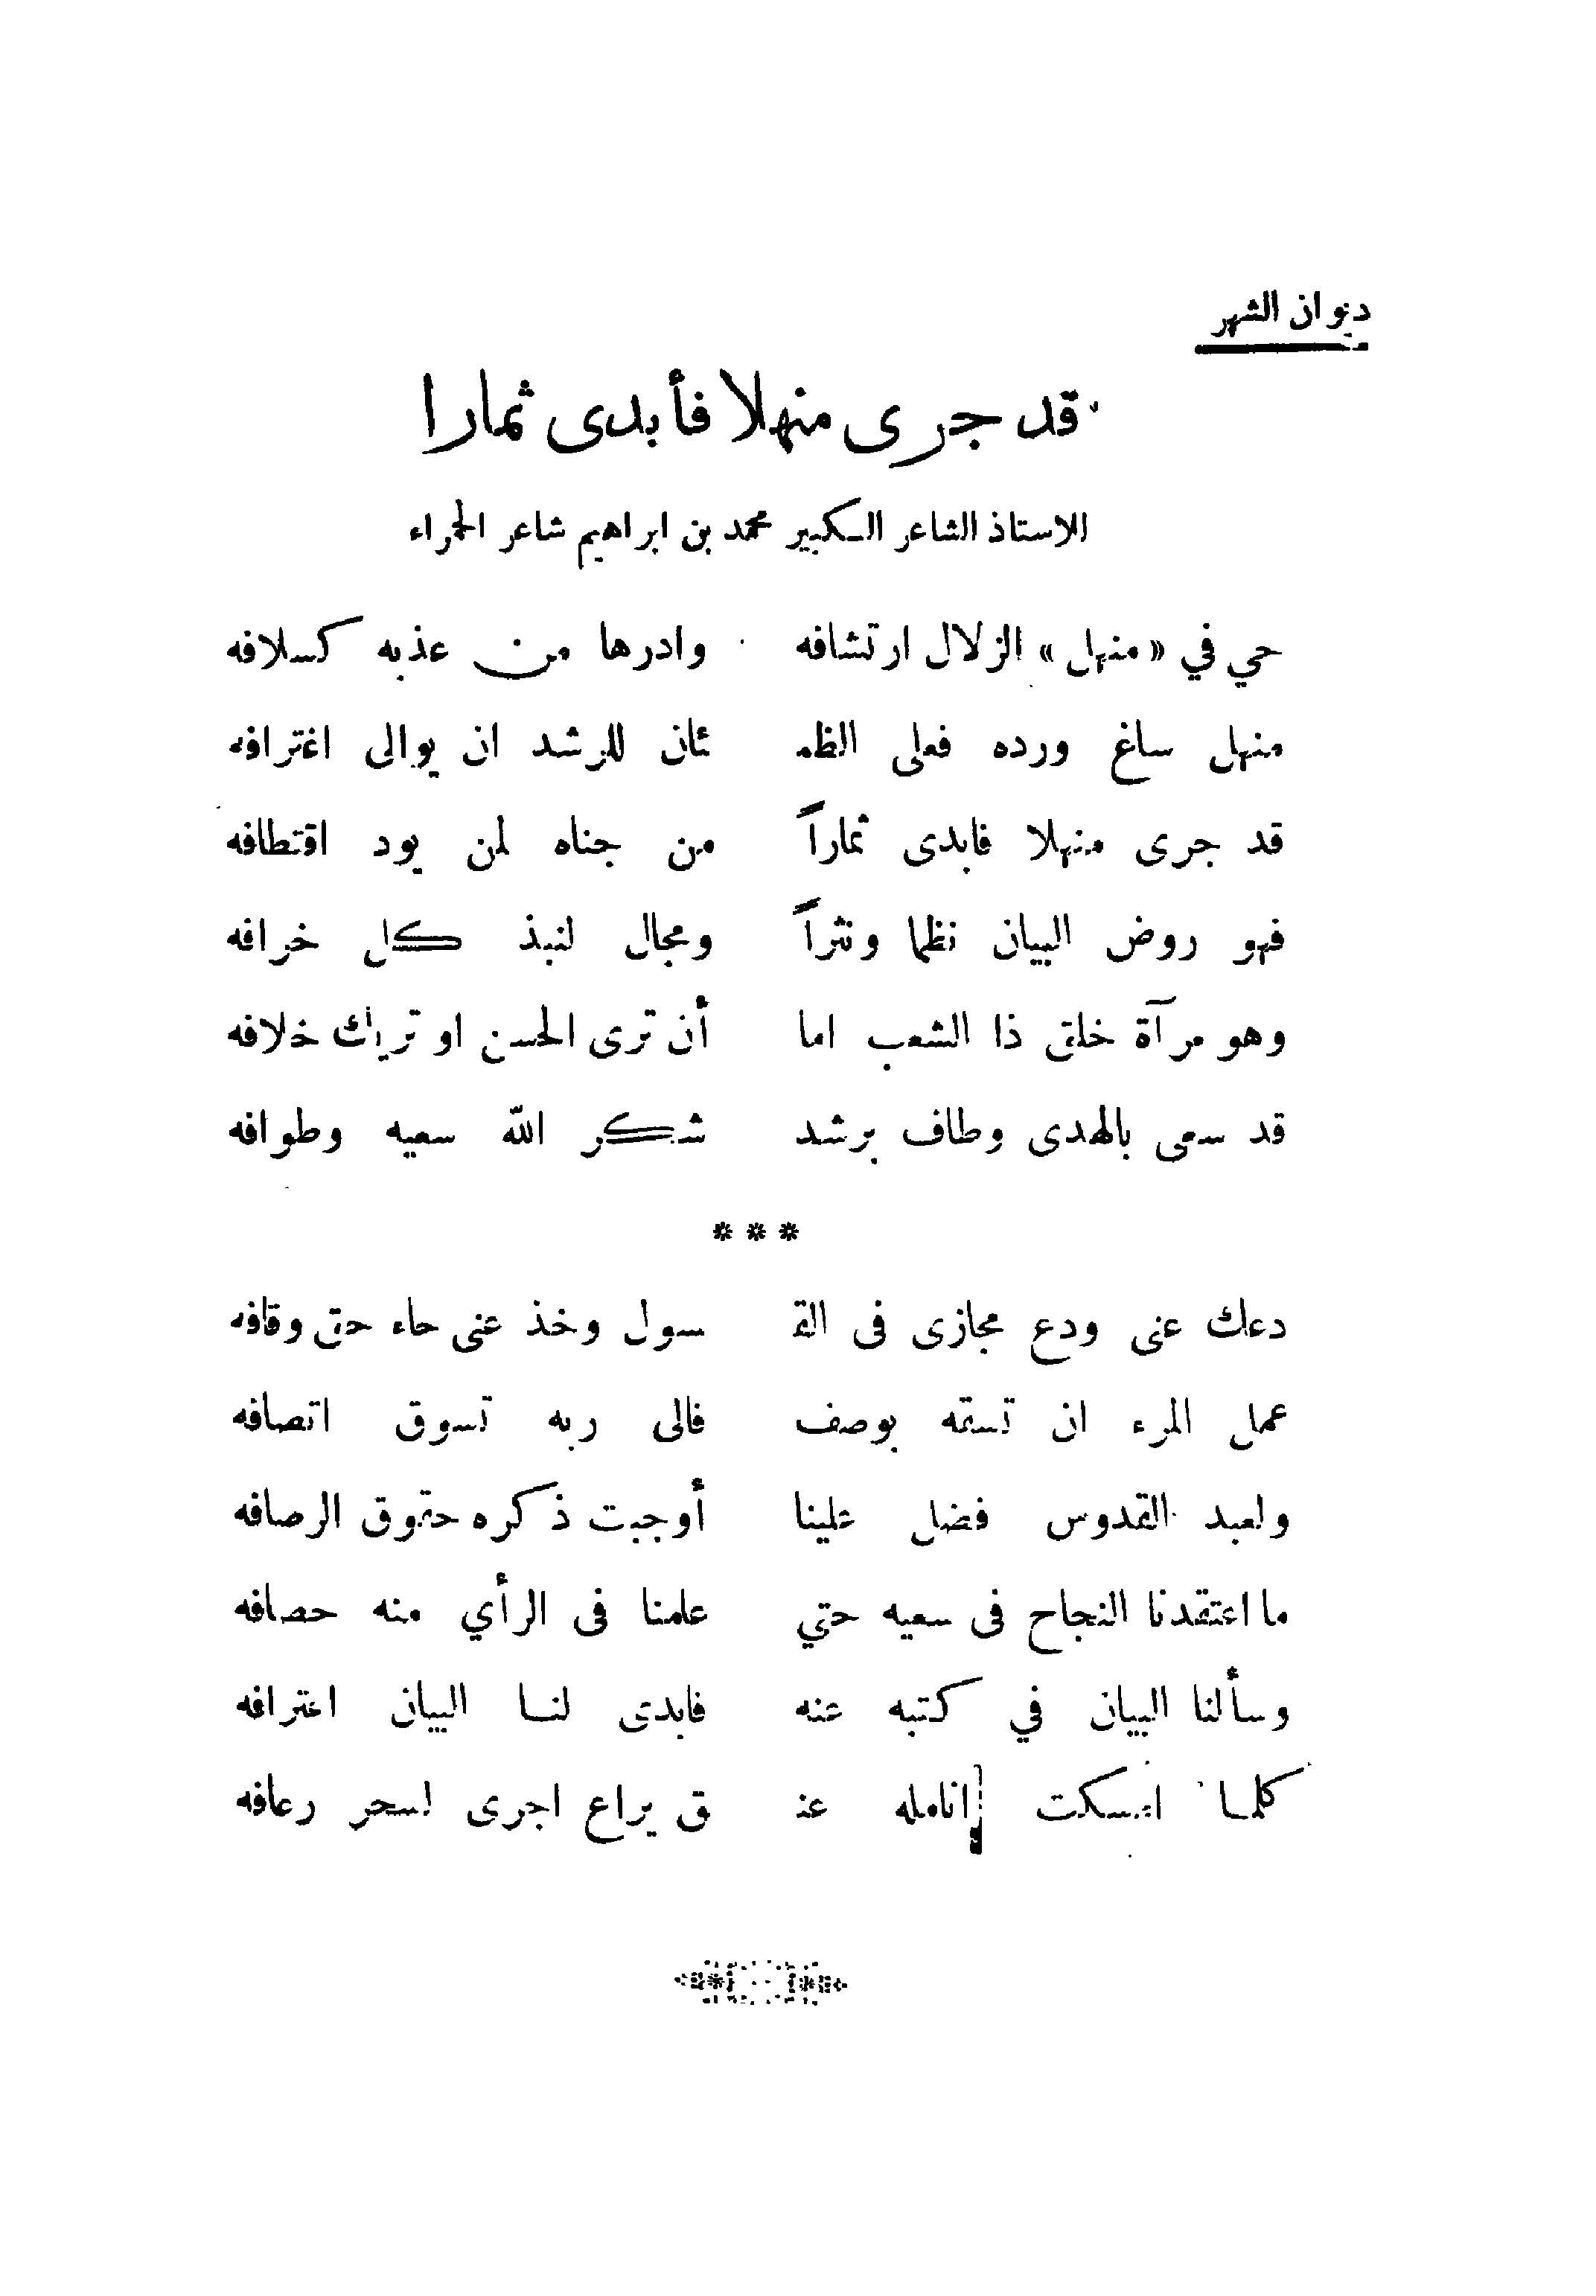 ديوان الشهر
قد جرى منهلا فأبدى ثمارا
للاستاذ الشاعر الكبير محمد بن ابراهيم شاعر الحمراء
حي في «منهل» الزلال ارتشافه وادرها من عذبه كسلافه
منهل ساغ ورده فعلى الظمـ ـئان للرشد ان يوالى اغترافه
قد جرى منهلا فابدى ثماراً من جناه لمن يود اقتطافه
فهو روض البيان نظما ونثراً ومجال لنبذ كل خرافه
وهو مرآة خلق ذا الشعب اما أن ترى الحسن او تريك خلافه
قد سعى بالهدى وطاف برشد شكر الله سعيه وطوافه
***
دعك عنى ودع مجازى فى القـ ـول وخذ عنى حاء حق وقافه
عمل المرء ان تسقه بوصف فالى ربه تسوق اتصافه
ولعبد القدوس فضل علينا أوجبت ذكره حقوق الرصافه
ما اعتقدنا النجاح فى سعيه حتي علمنا فى الرأي منه حصافه
وسألنا البيان في كتبه عنه فابدى لنا البيان اعترافه
كلما امسكت انامله عنـ ـق يراع اجرى لسحر رعافه